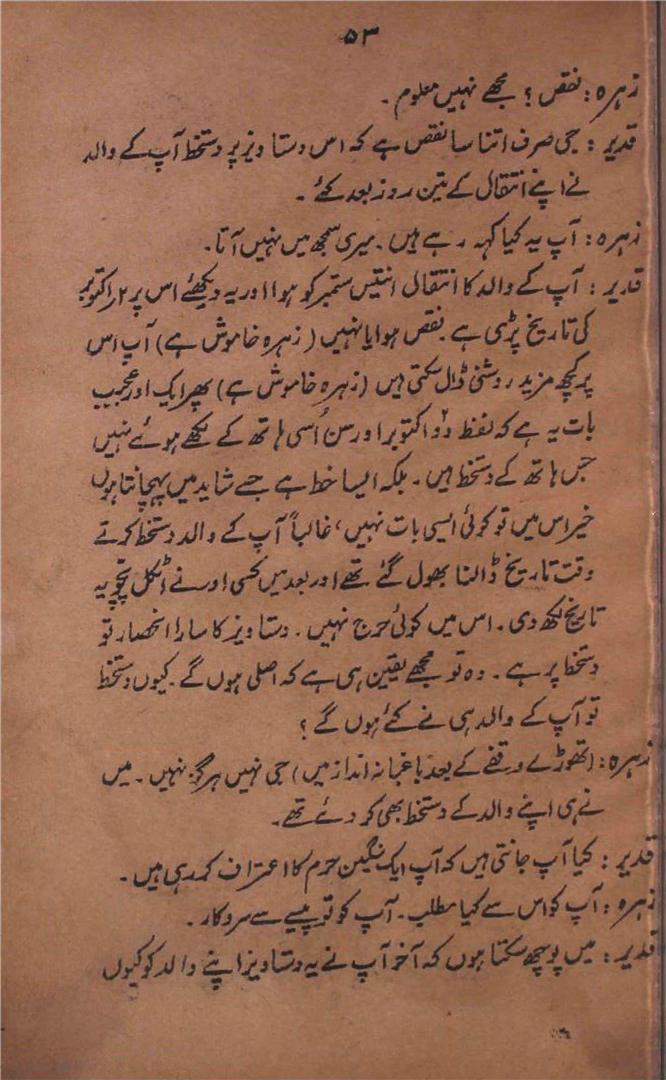 ۵۳
زہرہ: نقص؟ مجھے نہیں معلوم۔
قدیر: جی صرف اتنا سا نقص ہے کہ اس دستاویز پر دستخط آپ کے والد
نے اپنے انتقال کے تین روز بعد کئے۔
زہرہ: آپ یہ کیا کہہ رہے ہیں۔ میری سمجھ میں نہیں آتا۔
قدیر: آپ کے والد کا انتقال انتیس ستمبر کو ہوا اور یہ دیکھئے اس پر ۲ر اکتوبر
کی تاریخ پڑی ہے۔ نقص ہوا یا نہیں (زہرہ خاموش ہے) آپ اس
پر کچھ مزید روشنی ڈال سکتی ہیں (زہرہ خاموش ہے) پھر ایک اور عجیب
بات یہ ہے کہ لفظ دو اکتوبر اور سن اُسی ہاتھ کے لکھے ہوئے نہیں
جس ہاتھ کے دستخط ہیں۔ بلکہ ایسا خط ہے جسے شاید میں پہچانتا ہوں
خیر اس میں تو کوئی ایسی بات نہیں، غالباً آپ کے والد دستخط کرتے
وقت تاریخ ڈالنا بھول گئے تھے اور بعد میں کسی اور نے اٹکل پچو یہ
تاریخ لکھ دی۔ اس میں کوئی حرج نہیں۔ دستاویز کا سارا انحصار تو
دستخط پر ہے۔ وہ تو مجھے یقین ہی ہے کہ اصلی ہوں گے۔ کیوں دستخط
تو آپ کے والد ہی نے کئے ہوں گے؟
زہرہ: (تھوڑے وقفے کے بعد باغیانہ انداز میں) جی نہیں ہرگز نہیں۔ میں
نے ہی اپنے والد کے دستخط بھی کر دئے تھے۔
قدیر: کیا آپ جانتی ہیں کہ آپ ایک سنگین جرم کا اعتراف کر رہی ہیں۔
زہرہ: آپ کو اس سے کیا مطلب۔ آپ کو تو پیسے سے سروکار۔
قدیر: میں پوچھ سکتا ہوں کہ آخر آپ نے یہ دستاویز اپنے والد کو کیوں